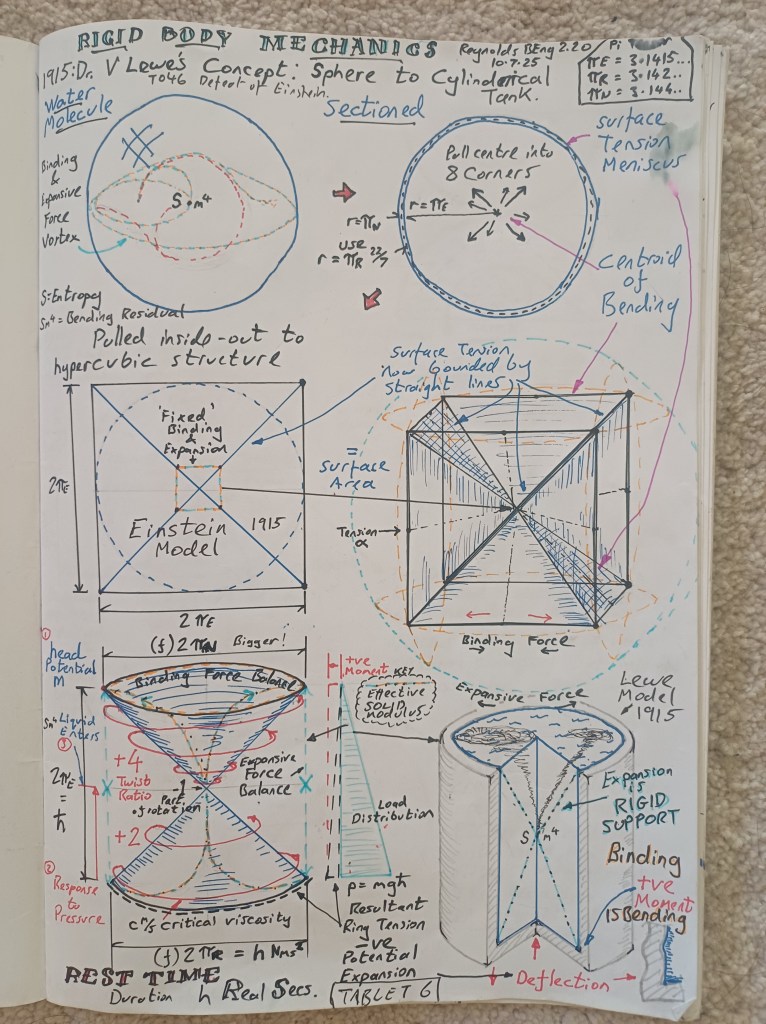 RIGID BODY MECHANICS
Reynolds BEng 2.20
10.7.25
Pi
πE = 3.1415..
πR = 3.142..
πN = 3.144..
1915: Dr. V Lewe's Concept: Sphere to Cylinderical
Tank.
TO46 Defeat of Einstein.
Water
Molecule
Sectioned
surface
Tension
Meniscus
Binding
&
Expansive
Force
Vortex
S.m⁴
Pull centre into
8 Corners
r=πN
r=πE
use
r=πR 22/7
S=Entropy
Sm⁴ = Bending Residual
Centroid
of
Bending
Pulled inside-out to
hypercubic structure
Surface Tension
now bounded by
straight lines
'Fixed'
Binding
&
Expansion
2πE
Einstein
Model
1915
2πE
=
Surface
Area
Tension
α
Binding Force
①
head
Potential
M
(f)2πN Bigger!
Binding Force Balance
+ve
Moment
KEY
Effective
SOLID
modulus
Expansive Force
Lewe
Model
1915
Sm⁴ Liquid
Enters
③
2πE
=
ħ
+4
Twist
Ratio
-1
Part
of rotation
+2
Expansive
Force
Balance
Load
Distribution
Expansion
is
RIGID
SUPPORT
S m⁴
Binding
+ve
Moment
IS Bending
②
Response
to
Pressure
cᵐ/s critical viscosity
p=mgħ
Resultant
Ring Tension
-ve
Potential
Expansion
(f)2πR = h Nms²
Deflection
REST TIME
Duration h Real Secs.
TABLET 6